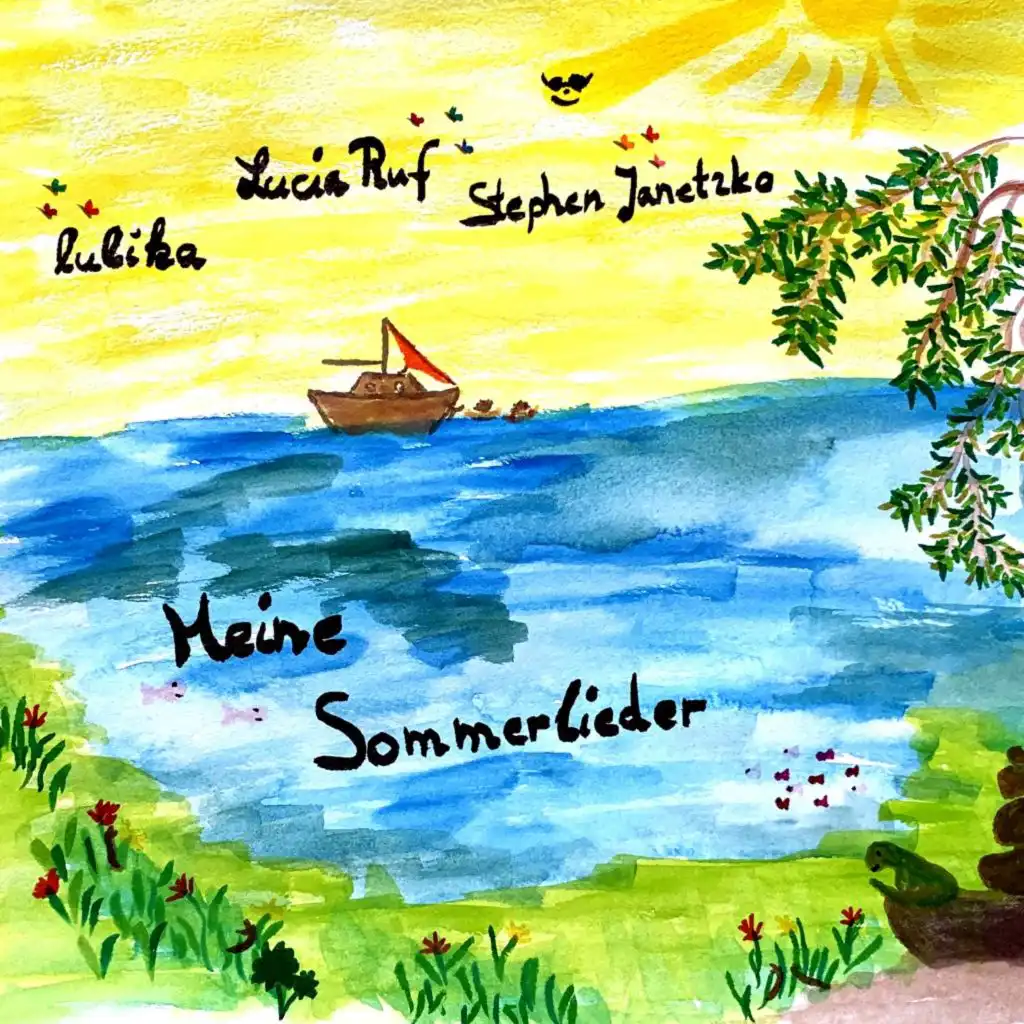 Lucia Ruf
Stephen Janetzko
lubika
Meine
Sommerlieder